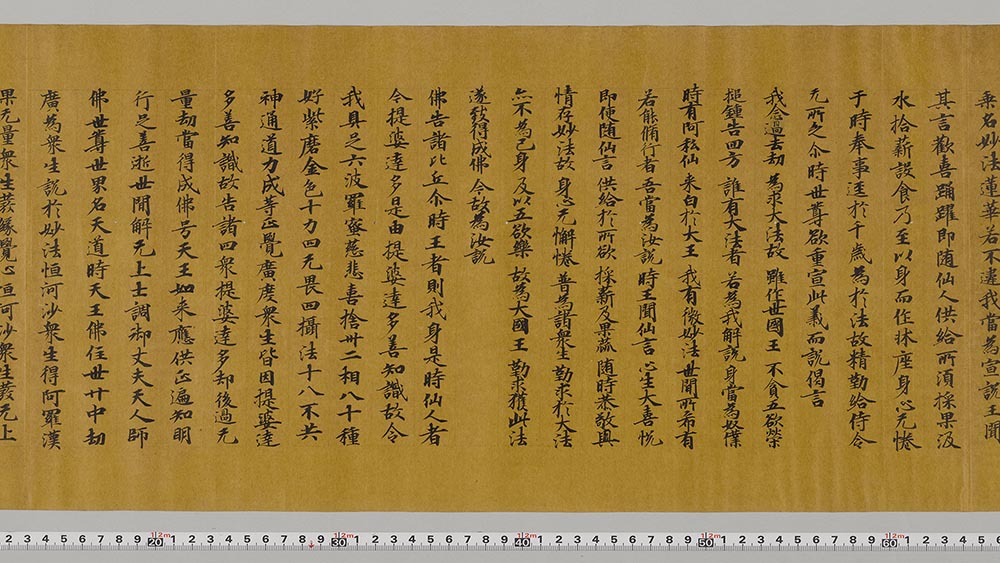 乘名妙法蓮華若不違我當為宣說王聞
其言歡喜踊躍即随仙人供給所湏採果汲
水拾薪設食乃至以身而作牀座身心无惓
于時奉事逕於千歲為於法故精勤給侍令
无所乏尒時世尊欲重宣此義而說偈言
我念過去劫 為求大法故 雖作世國王 不貪五欲樂
搥鍾告四方 誰有大法者 若為我解說 身當為奴僕
時有阿私仙 来白於大王 我有微妙法 世閒所希有
若能脩行者 吾當為汝說 時王聞仙言 心生大喜悅
即便随仙言 供給於所欲 採薪及果蓏 随時恭敬與
情存妙法故 身心无懈惓 普為諸衆生 勤求於大法
亦不為己身 及以五欲樂 故為大國王 勤求獲此法
遂致得成佛 今故為汝說
佛告諸比丘尒時王者則我身是時仙人者
今提婆達多是由提婆達多善知識故令
我具足六波羅蜜慈悲喜捨卅二相八十種
好紫磨金色十力四无畏四攝法十八不共
神通道力成等正覺廣度衆生皆因提婆達
多善知識故告諸四衆提婆達多却後過无
量劫當得成佛号天王如来應供正遍知明
行足善逝世閒解无上士調御丈夫天人師
佛世尊世界名天道時天王佛住世廿中劫
廣為衆生說於妙法恒河沙衆生得阿羅漢
果无量衆生發緣覺心恒河沙衆生發无上
2 3 4 5 6 7 8 9 20 1 2 3 4 5 6 7 8 9 30 1 2 3 4 5 6 7 8 9 40 1 2 3 4 5 6 7 8 9 50 1 2 3 4 5 6 7 8 9 60 1 2 3 4 5 6